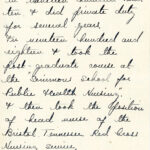 ten & did private duty
for several years.
In nineteen hundred and
eighteen & took the
Post-graduate course at
the Simmons School for
Public Health Nursing,
& then took the position
of head nurse of the
Bristol Tennessee Red Cross
Nursing Service.